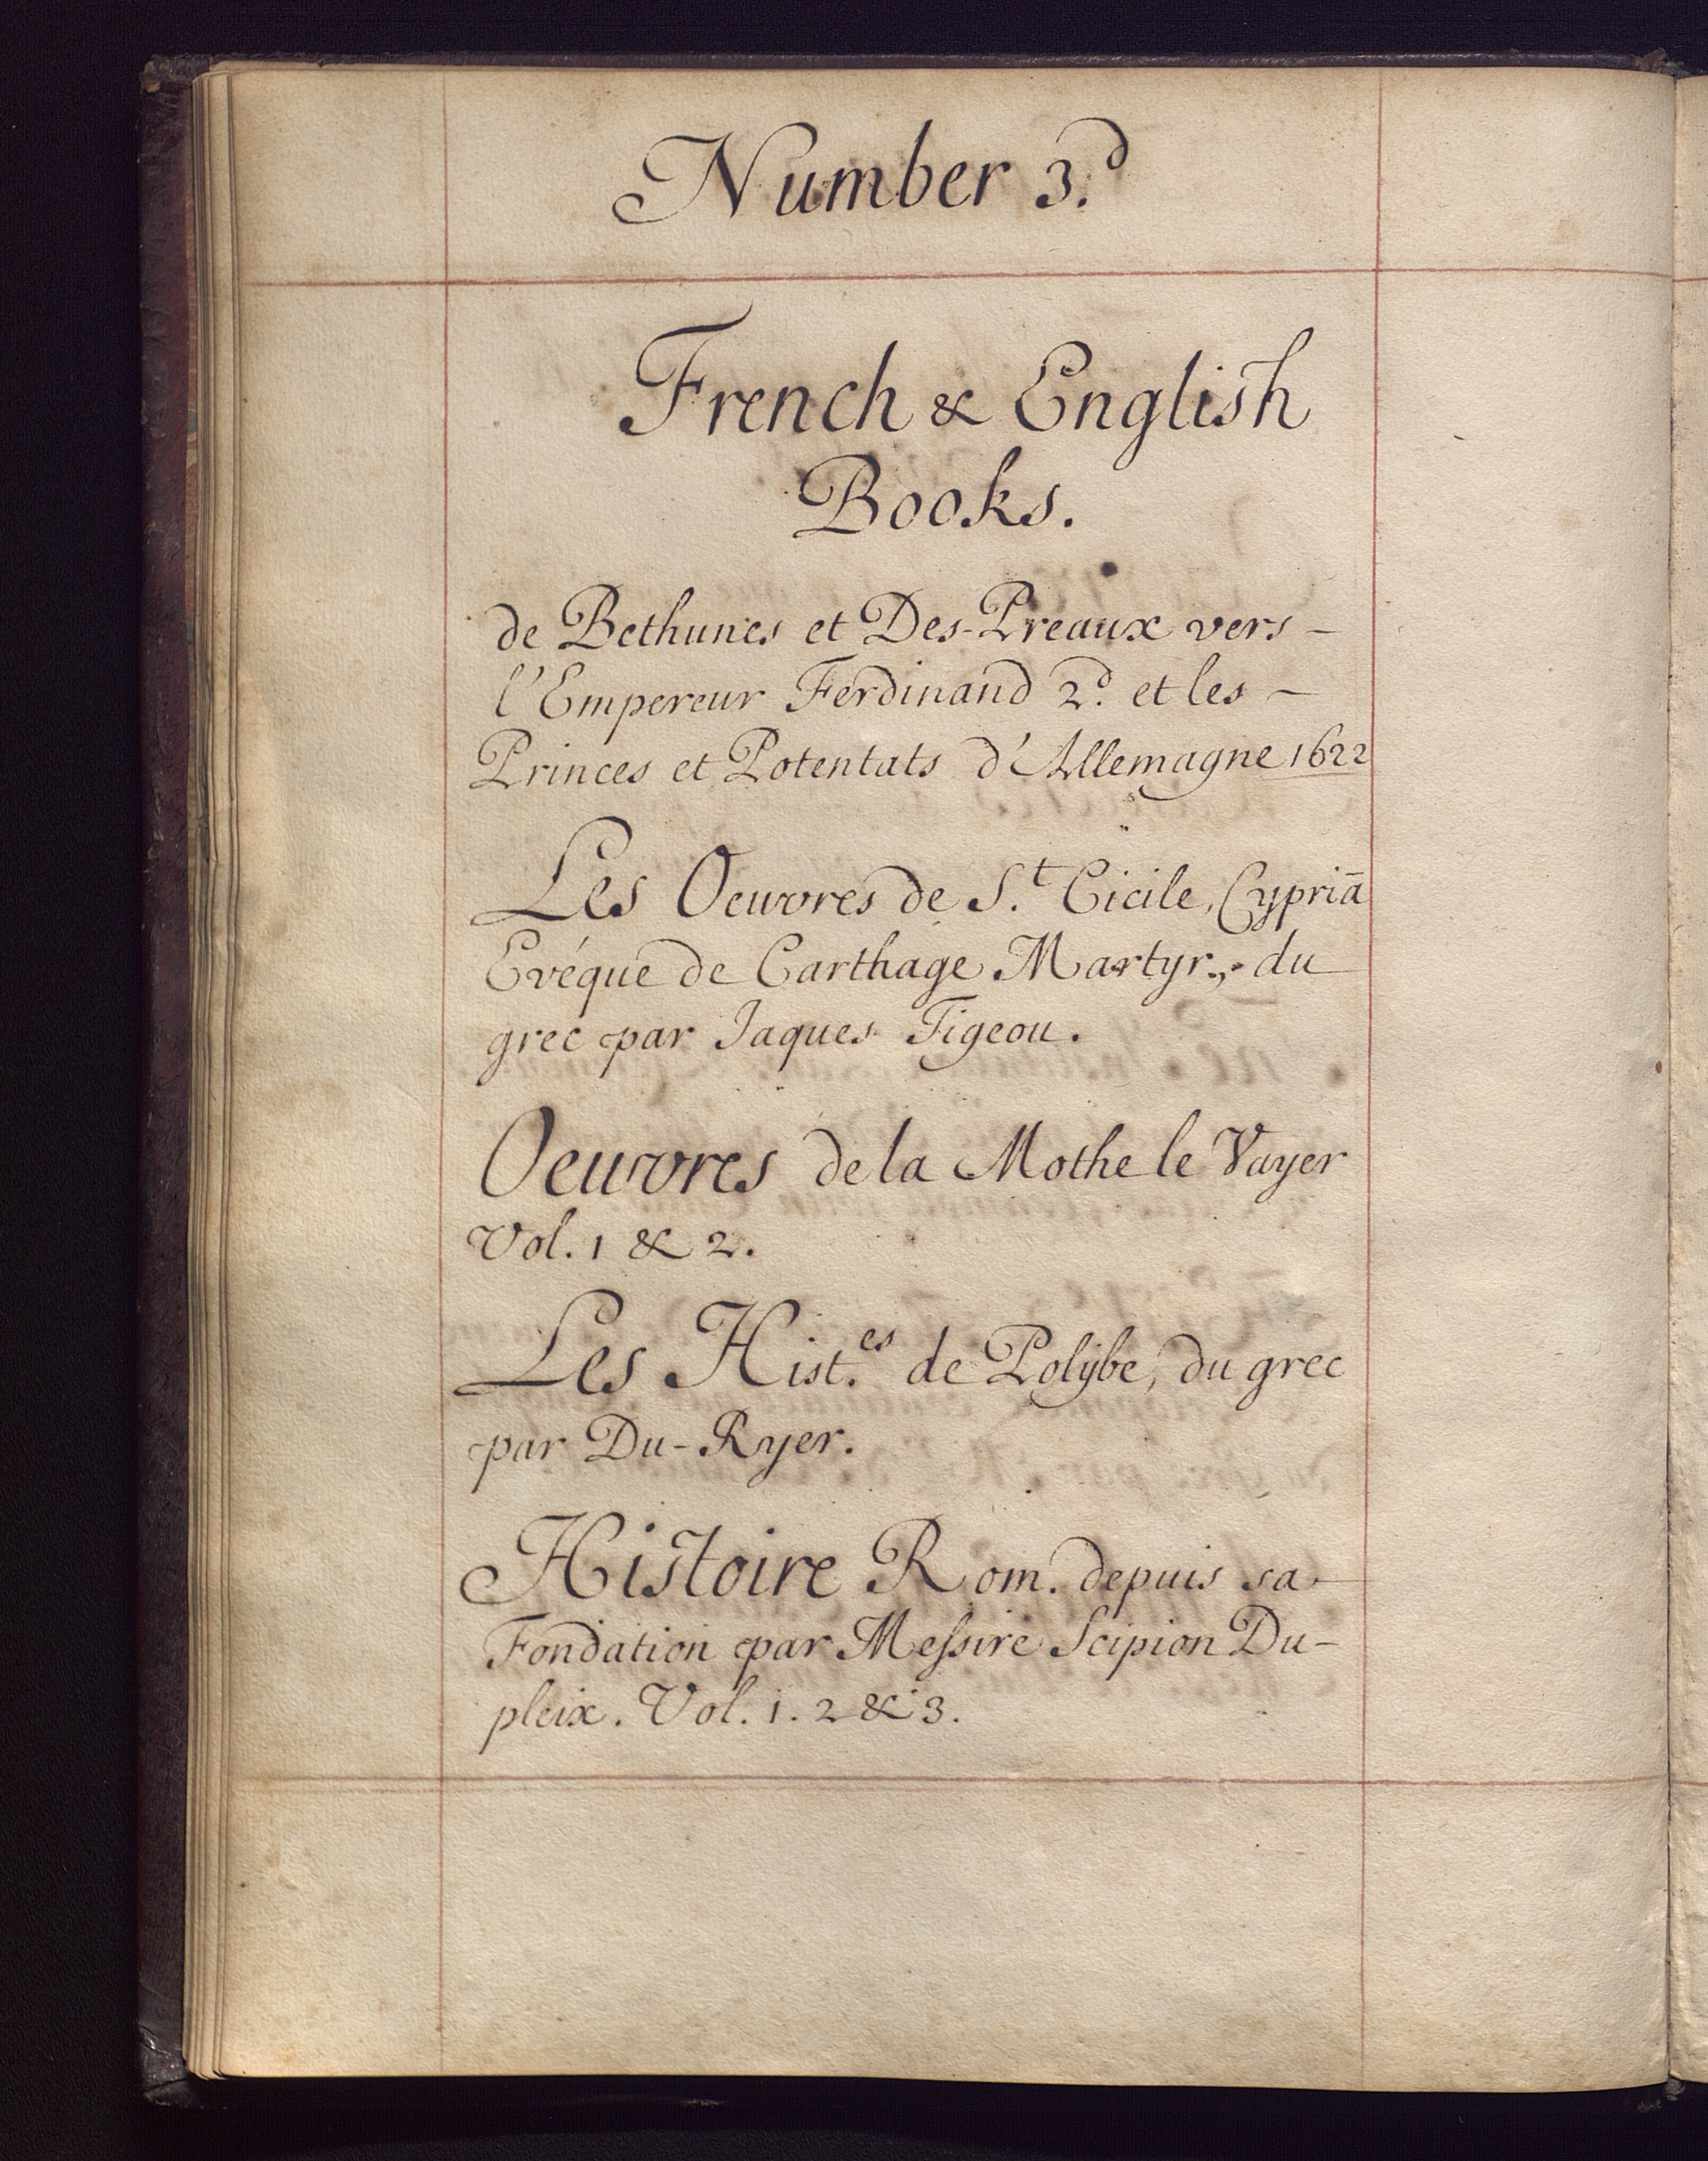 Number 3.d
French & English
Books.
de Bethunes et Des-Preaux vers -
l'Empereur Ferdinand 2.d et les -
Princes et Potentats d'Allemagne 1622
Les Oeuvres de S.t Cicile, Cypriā
Evéque de Carthage Martyr., du
grec par Jaques Tigeou.
Oeuvres de la Mothe le Vayer
Vol. 1 & 2.
Les Hist.es de Polÿbe, du grec
par Du-Ryer.
Histoire Rom. depuis sa
Fondation par Meſsire Scipion Du-
pleix. Vol. 1. 2 & 3.